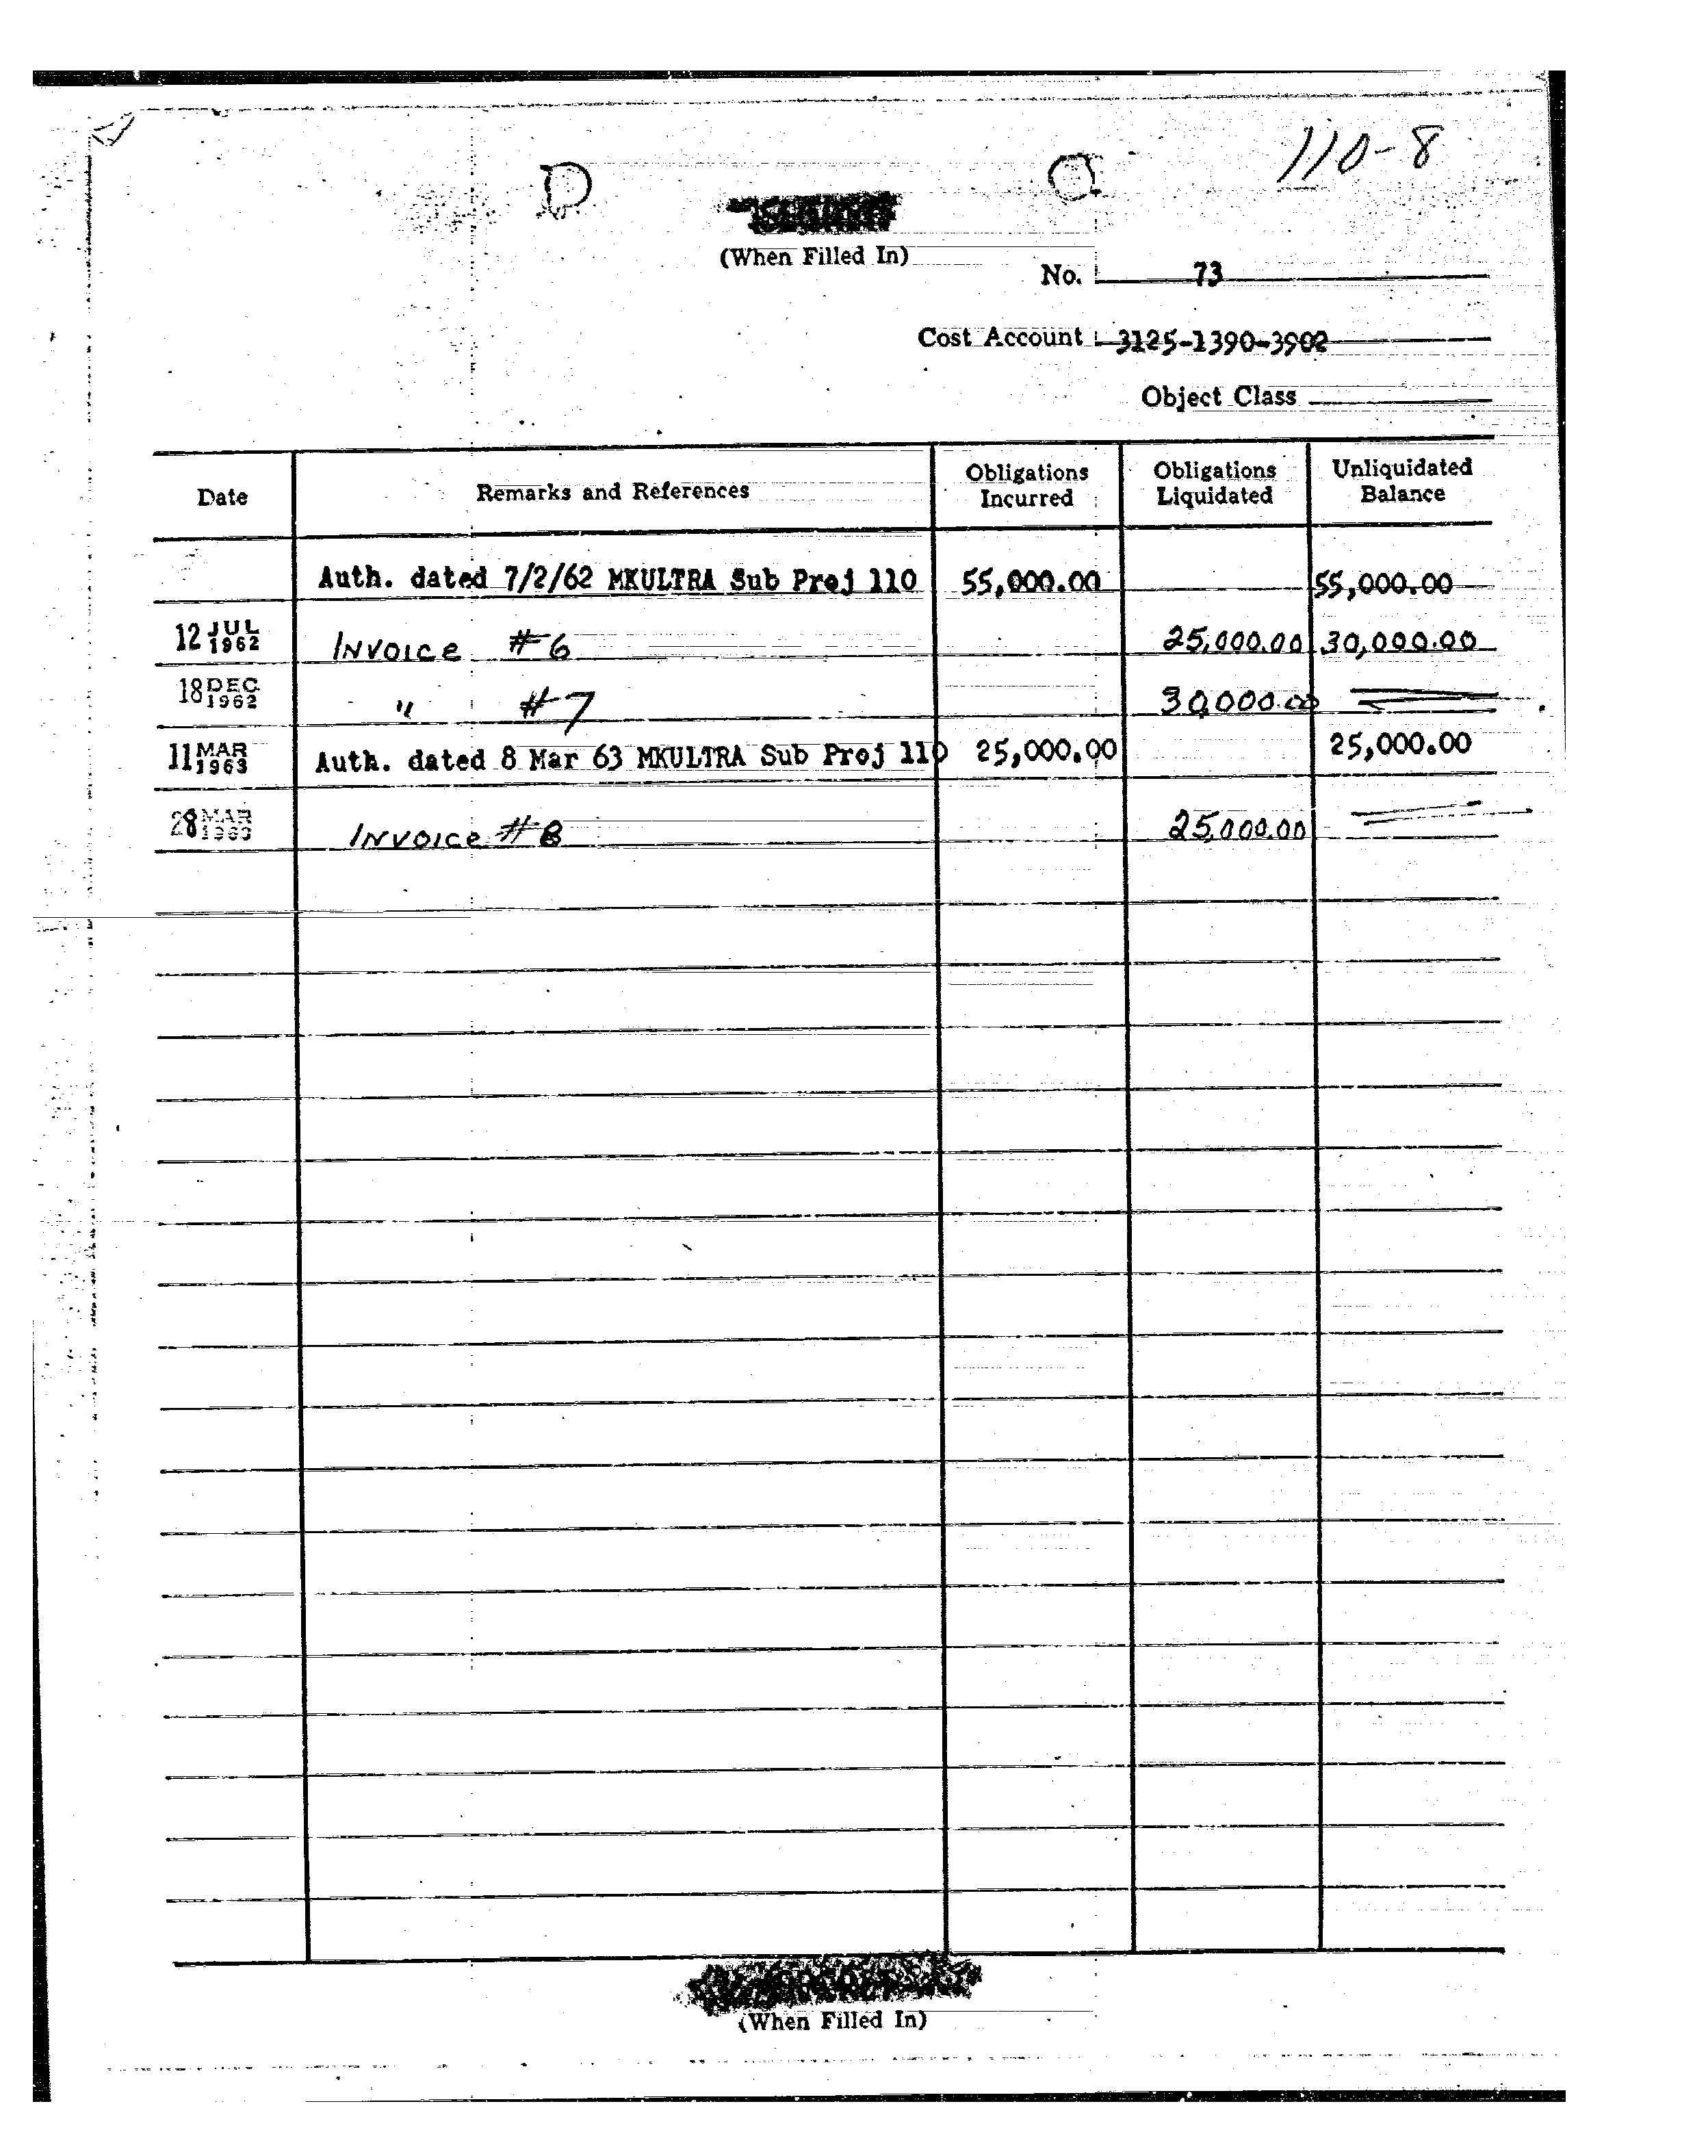 110-8
(When Filled In)
No. 73
Cost Account 3125-1390-3902
Object Class
Date Remarks and References Obligations Incurred Obligations Liquidated Unliquidated Balance
Auth. dated 7/2/62 MKULTRA Sub Proj 110 55,000.00 55,000.00
12 JUL 1962 Invoice #6 25,000.00 30,000.00
18 DEC 1962 " #7 30,000.00
11 MAR 1963 Auth. dated 8 Mar 63 MKULTRA Sub Proj 110 25,000.00 25,000.00
28 MAR 1963 Invoice #8 25,000.00
(When Filled In)